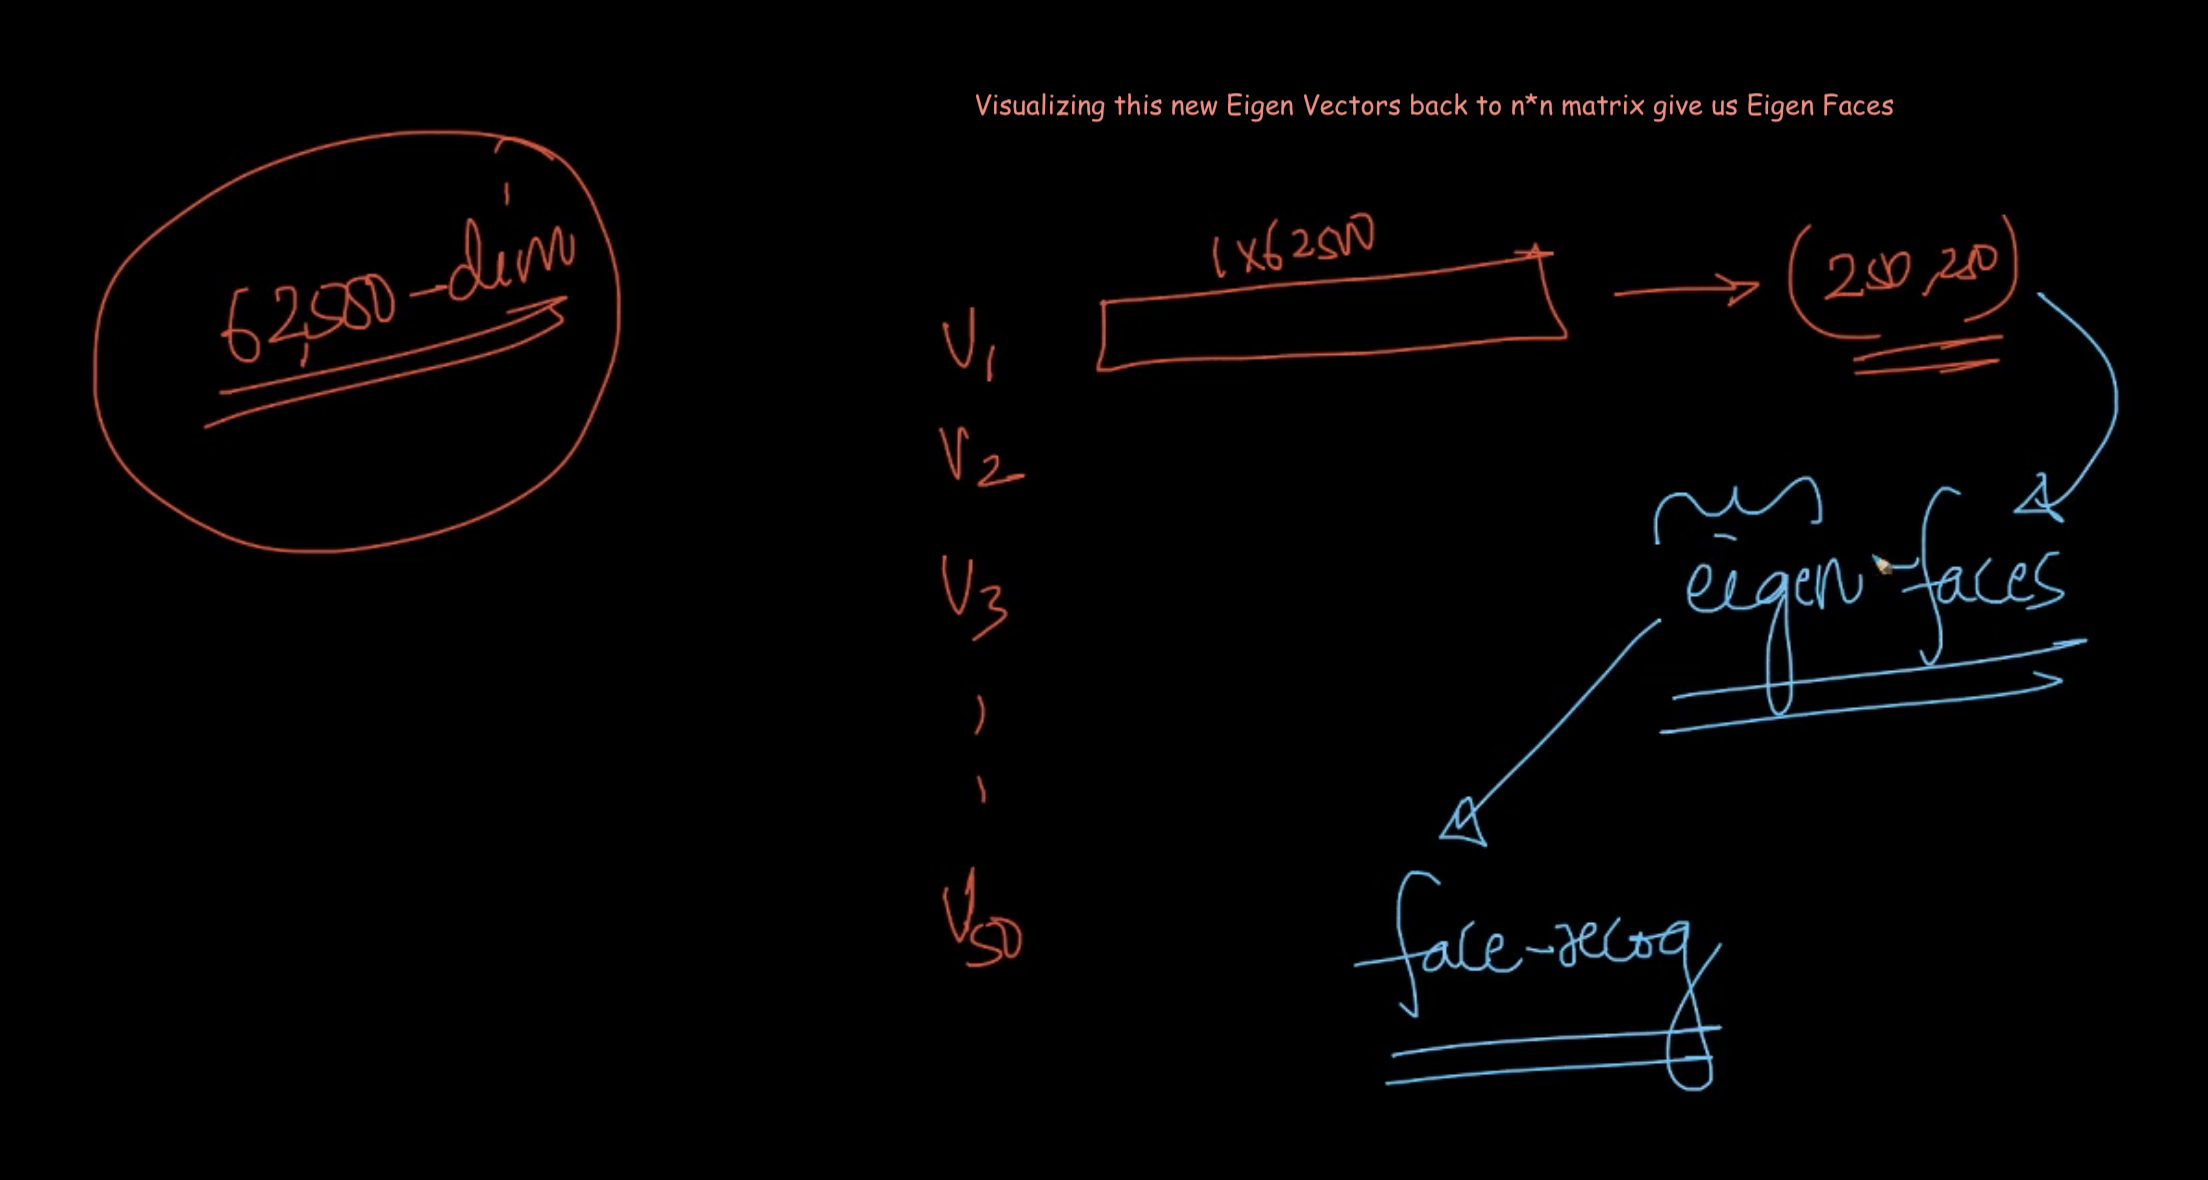 Visualizing this new Eigen Vectors back to n*n matrix give us Eigen Faces
62,500-dim
1x62500
(250,250)
V1
V2
V3
V50
eigen-faces
face-recog